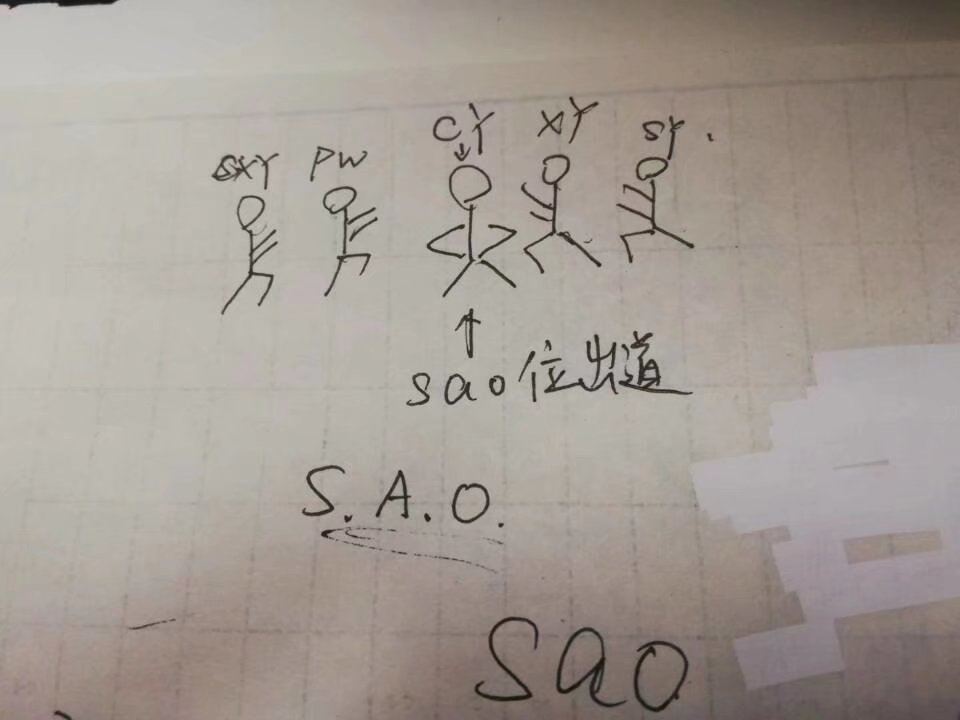 SXY PW CY XY SY.
sao位出道
S.A.O.
sao